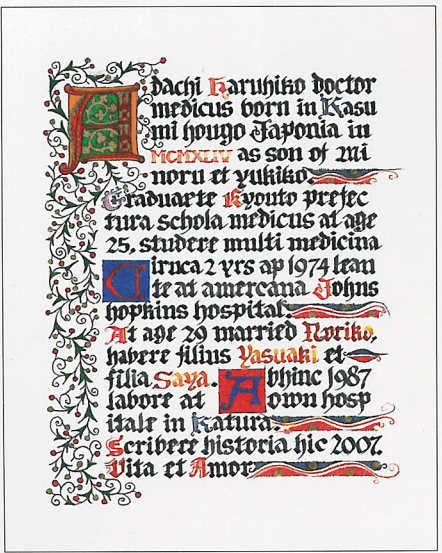 Adachi Haruhiko doctor
medicus born in Kasu
mi hougo Japonia in
MCMXLIV as son of Mi
noru et yukiko.
Graduaete Kyouto prefec
tura schola medicus at age
25. studere multi medicina
Ciruca 2 yrs ap 1974 lean
te at amercana Johns
hopkins hospital.
At age 29 married Noriko,
habere filius Yasuaki et
filia Saya. Abhinc 1987
labore at A own hosp
itale in Katura.
Scribere historia hic 2007.
Vita et Amor